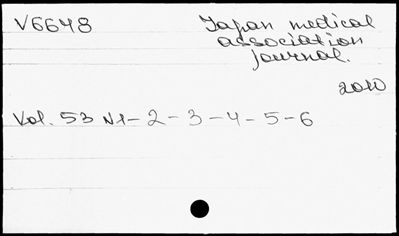 V6648
Japan medical
association
journal.
2010
Vol. 53 N1-2-3-4-5-6